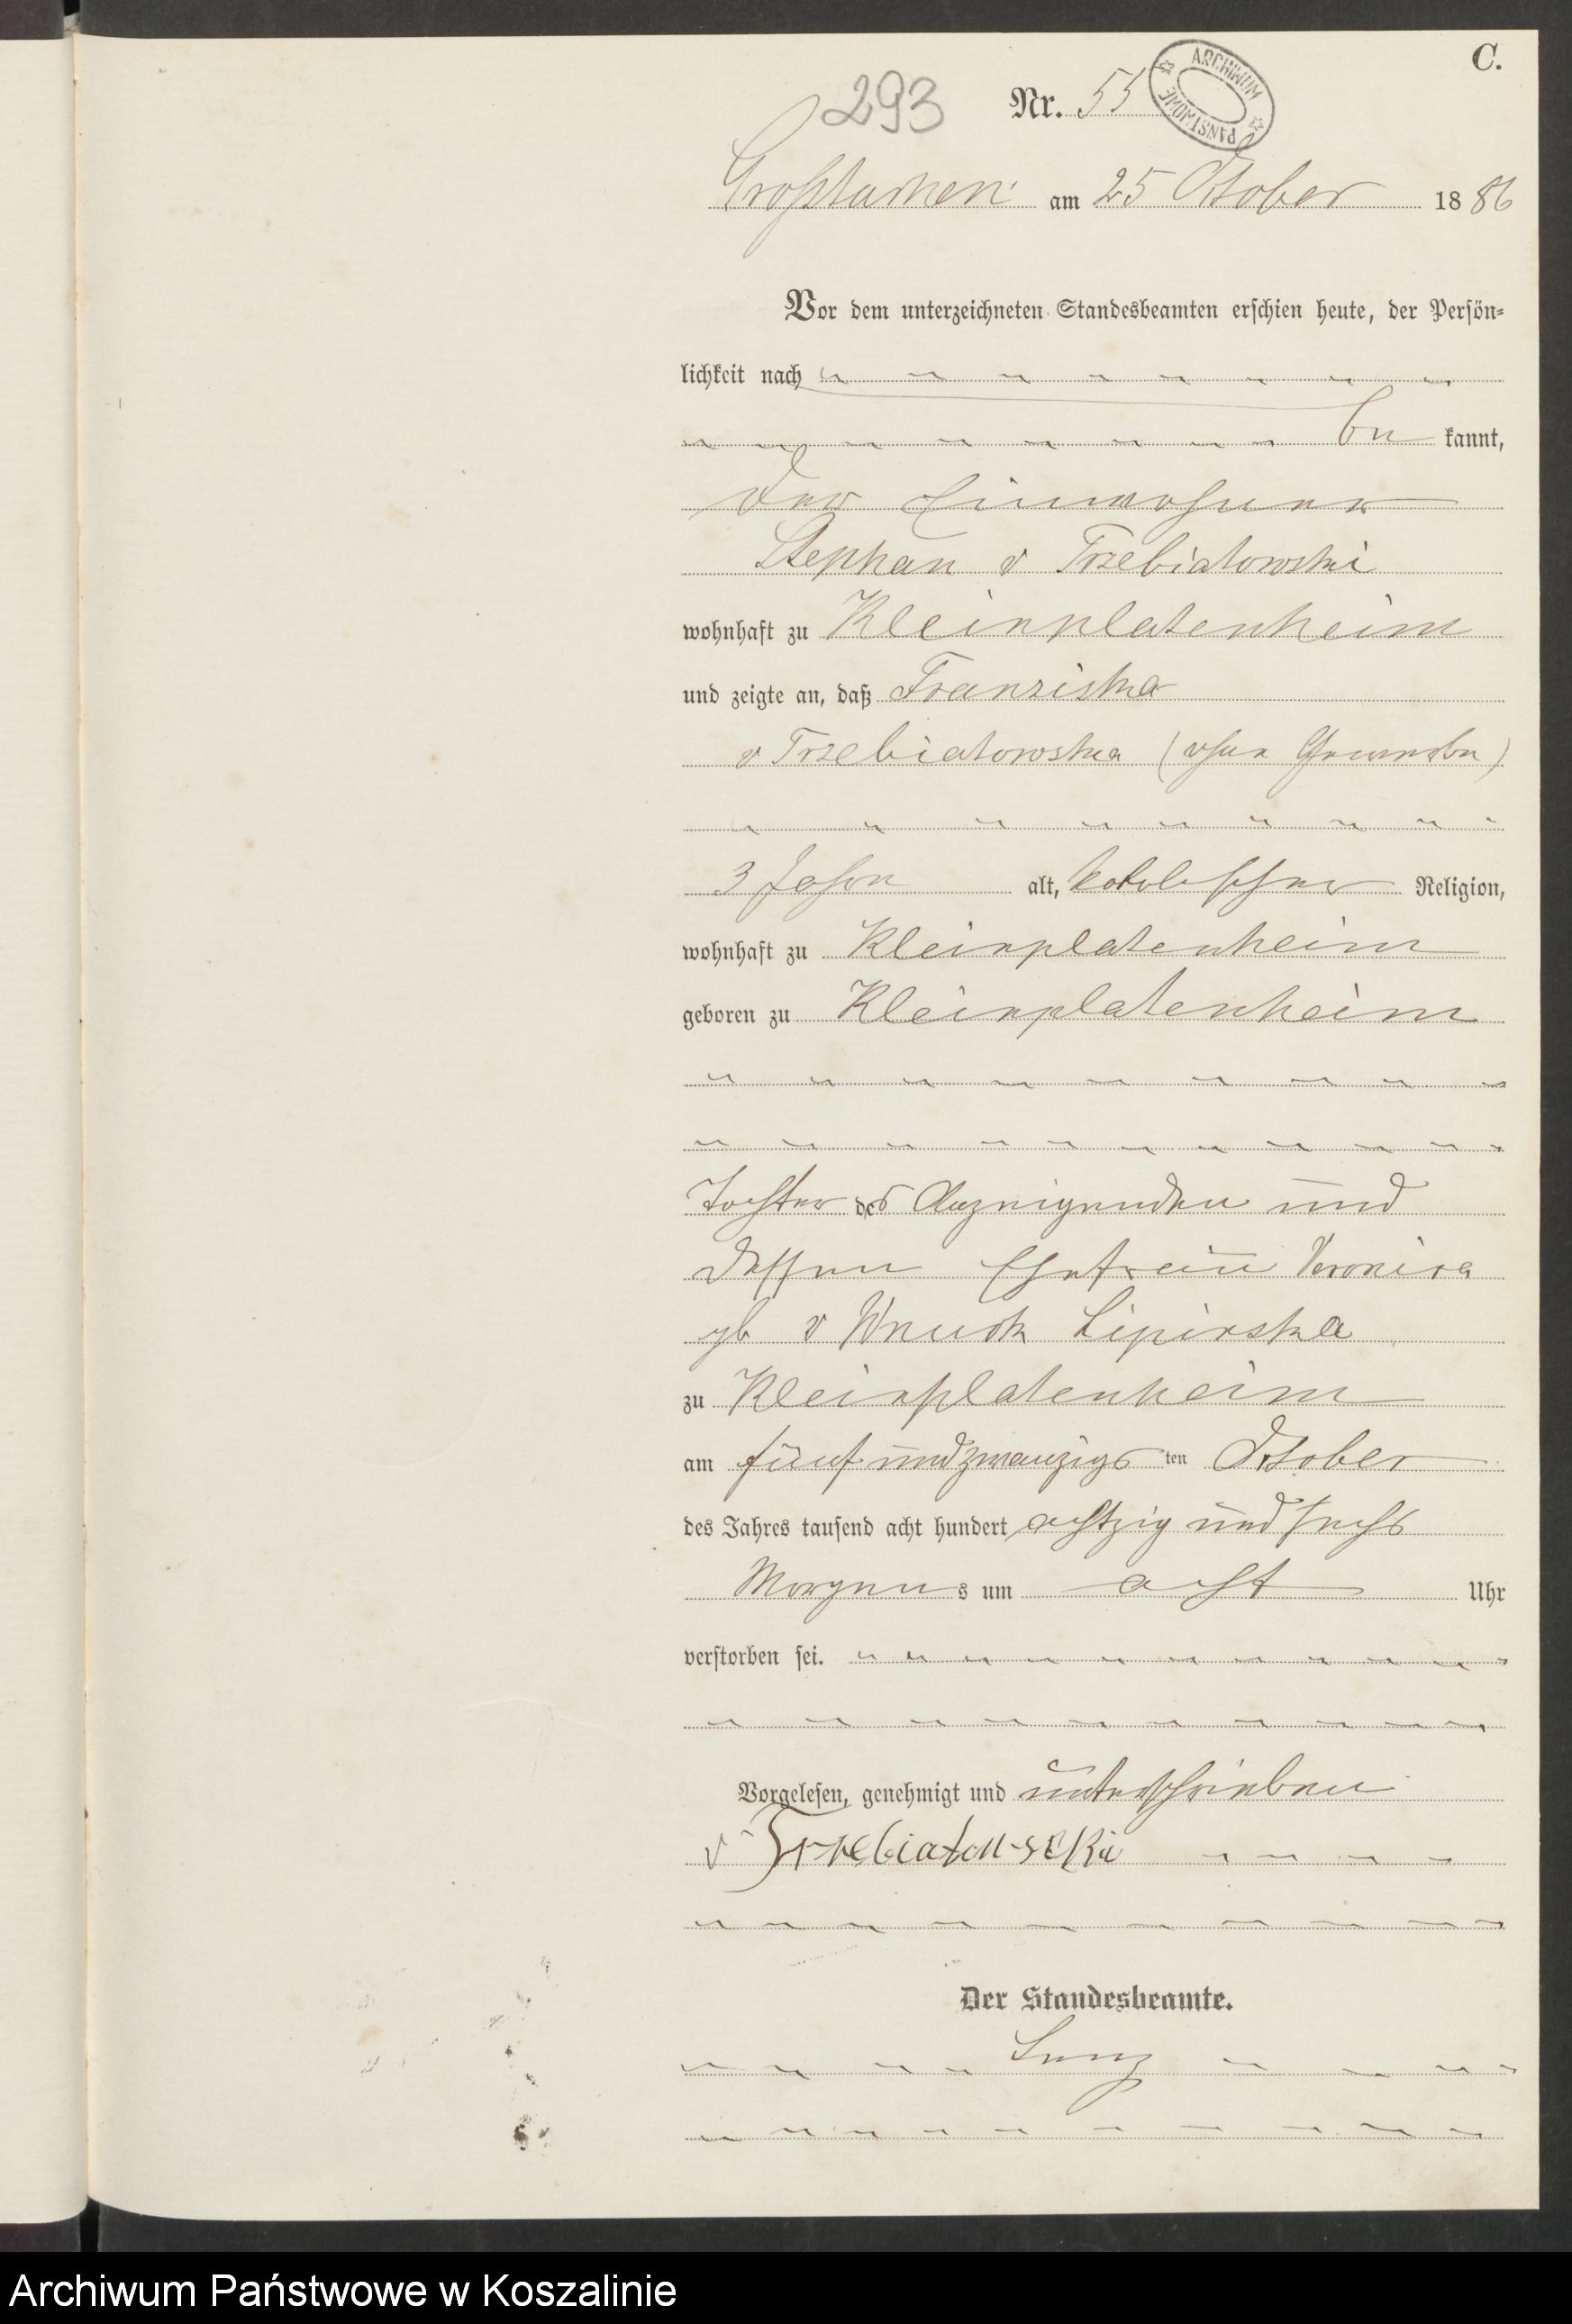 C.
293 Nr. 55
ARCHIWUM PAŃSTWOWE
Großtuchen am 25 October 1886
Vor dem unterzeichneten Standesbeamten erschien heute, der Persön-
lichkeit nach
be kannt,
der Einwohner
Stephan v Trzebiatowski
wohnhaft zu Kleinplatenheim
und zeigte an, daß Franziska
v Trzebiatowska (ohne Gewerbe)
3 Jahre alt, katolischer Religion,
wohnhaft zu Kleinplatenheim
geboren zu Kleinplatenheim
Tochter des Anzeigenden und
dessen Ehefrau Veronica
gb v Wnuck Lipinska
zu Kleinplatenheim
am fünfundzwanzigsten October
des Jahres tausend acht hundert achtzig und sechs
Morgens um acht Uhr
verstorben sei.
Vorgelesen, genehmigt und unterschrieben
v Trzebiatowski
Der Standesbeamte.
Archiwum Państwowe w Koszalinie